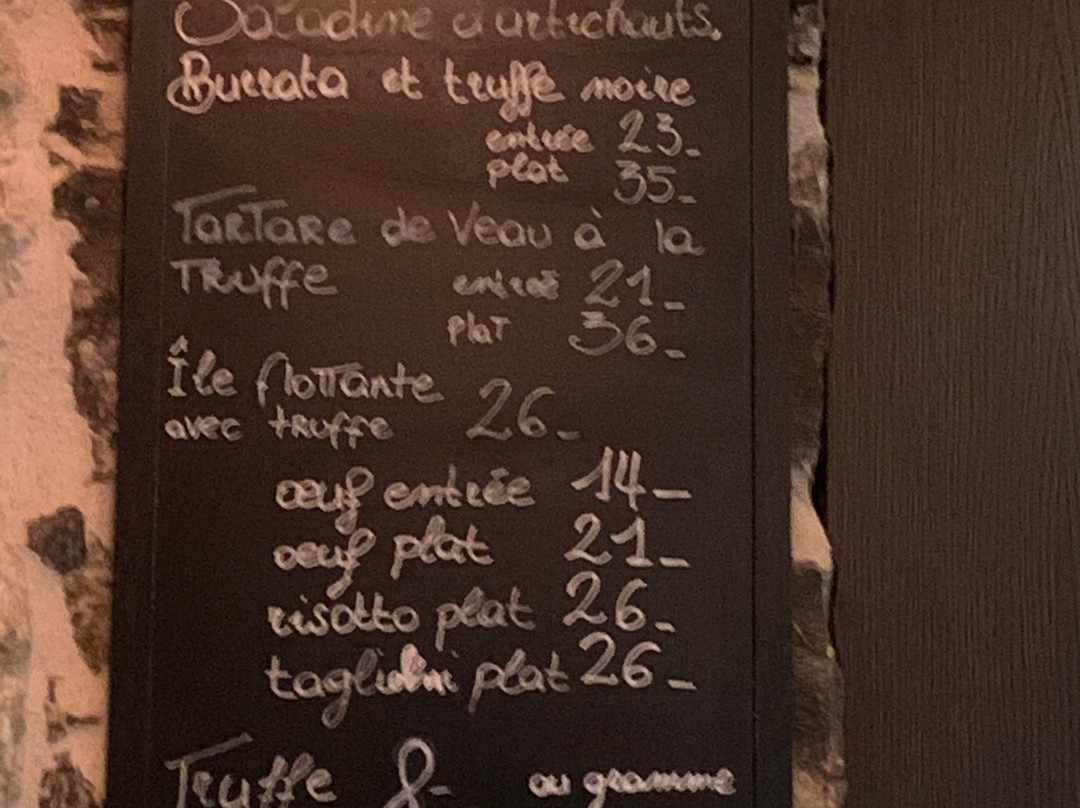 Saladine d'artichauts.
Burrata et truffe noire
entrée 23.-
plat 35.-
TARTARE de Veau à la
TRUFFE entrée 21.-
PLAT 36.-
Île flottante
avec truffe 26.-
œuf entrée 14.-
œuf plat 21.-
risotto plat 26.-
tagliolini plat 26.-
Truffe 8.- au gramme